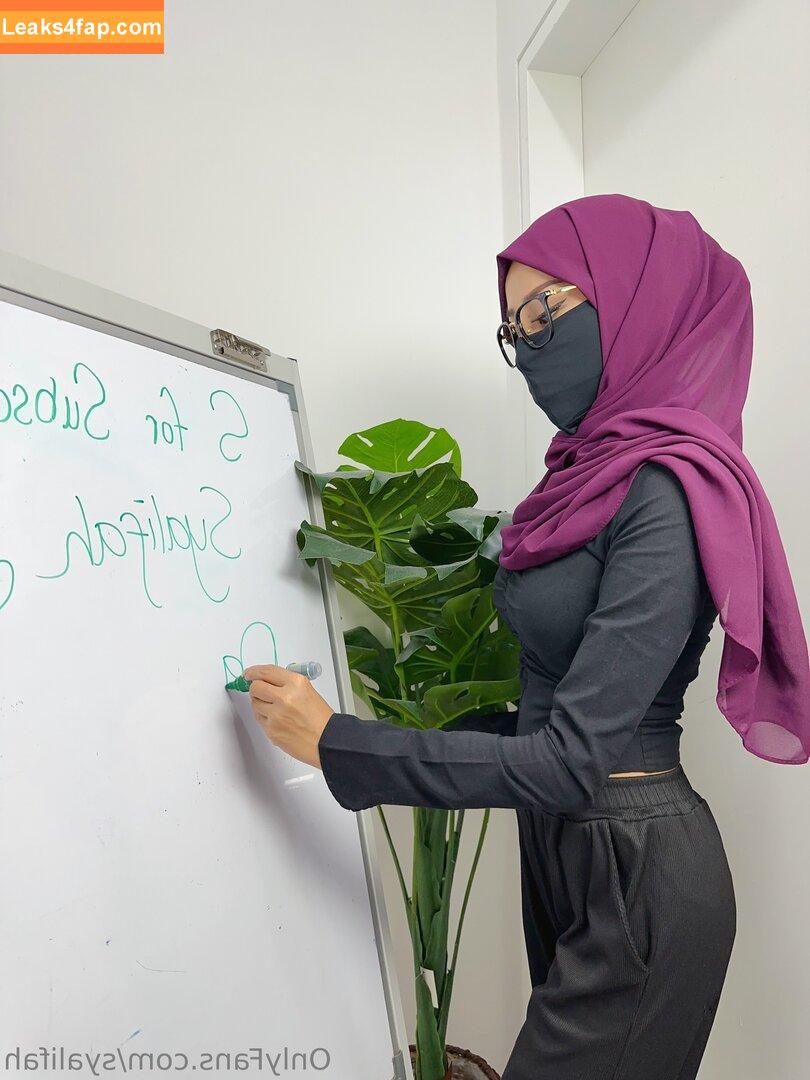 Leaks4fap.com
S for Subsc
Syalifah
OnlyFans.com/syalifah